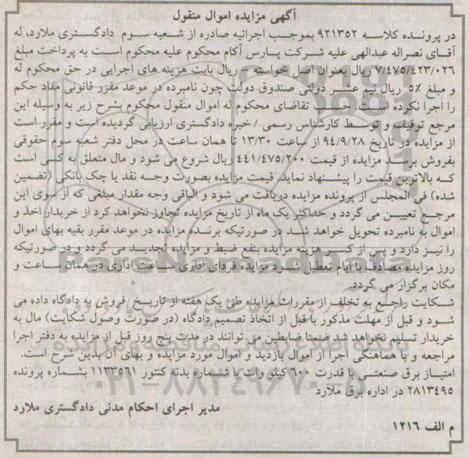 آگهی مزایده اموال منقول
در پرونده کلاسه ۹۲۱۳۵۲ بموجب اجرائیه صادره از شعبه سوم دادگستری ملارد، له
آقای نصراله عبدالهی علیه شرکت پارس آکام محکوم علیه محکوم است به پرداخت مبلغ
۷/۴۷۵/۴۲۳/۰۲۶ ریال بعنوان اصل خواسته و ریال بابت هزینه های اجرایی در حق محکوم له
و مبلغ ۵٪ ریال نیم عشر دولتی صندوق دولت چون نامبرده در موعد مقرر قانونی مفاد حکم
را اجرا نکرده است و حسب تقاضای محکوم له اموال منقول محکوم بشرح زیر به وسیله این
مرجع توقیف و توسط کارشناس رسمی / خبره دادگستری ارزیابی گردیده است و مقرر است
از مزایده در تاریخ ۹۴/۹/۲۸ از ساعت ۱۳/۳۰ تا همان ساعت در محل دفتر شعبه سوم حقوقی
بفروش برسد مزایده از قیمت ۴۴۱/۴۷۵/۲۰۰ ریال شروع می شود و مال متعلق به کسی است
که بالاترین قیمت را پیشنهاد نماید. قیمت مزایده بصورت وجه نقد یا چک بانکی (تضمین
شده) فی المجلس از برنده مزایده دریافت می شود و الباقی وجه مقدار مبلغی که از سوی این
مرجع تعیین می گردد و حداکثر یک ماه از تاریخ مزایده تجاوز نخواهد کرد از خریدار اخذ و
اموال به نامبرده تحویل خواهد شد در صورتیکه برنده مزایده در موعد مقرر بقیه بهای اموال
را نپردازد پس از کسر هزینه مزایده بنفع ضبط و مزایده تجدید می گردد و در صورتیکه
روز مزایده مصادف با ایام تعطیل شود مزایده فردای اداری ساعت اداری در همان ساعت و
مکان برگزار می گردد.
شکایت راجع به تخلف از مقررات مزایده ظرف یک هفته از تاریخ فروش به دادگاه داده می
شود و قبل از مهلت مذکور یا قبل از اتخاذ تصمیم دادگاه (در صورت وصول شکایت) مال به
خریدار تسلیم نخواهد شد ضمنا ضابطین می توانند در مدت پنج روز قبل از مزایده به دفتر اجرا
مراجعه و با هماهنگی اجرا از اموال بازدید و اموال مورد مزایده و بهای آن بدین شرح است.
امتیاز برق صنعتی با قدرت ۶۰۰ کیلو وات با شماره بدنه کنتور ۱۱۳۳۵۶۱ بشماره پرونده
۲۸۱۳۴۹۵ در اداره برق ملارد
مدیر اجرای احکام مدنی دادگستری ملارد
م الف ۱۲۱۶
ParsNamadData
۰۲۱-۸۸۳۴۹۶۷۰-۵